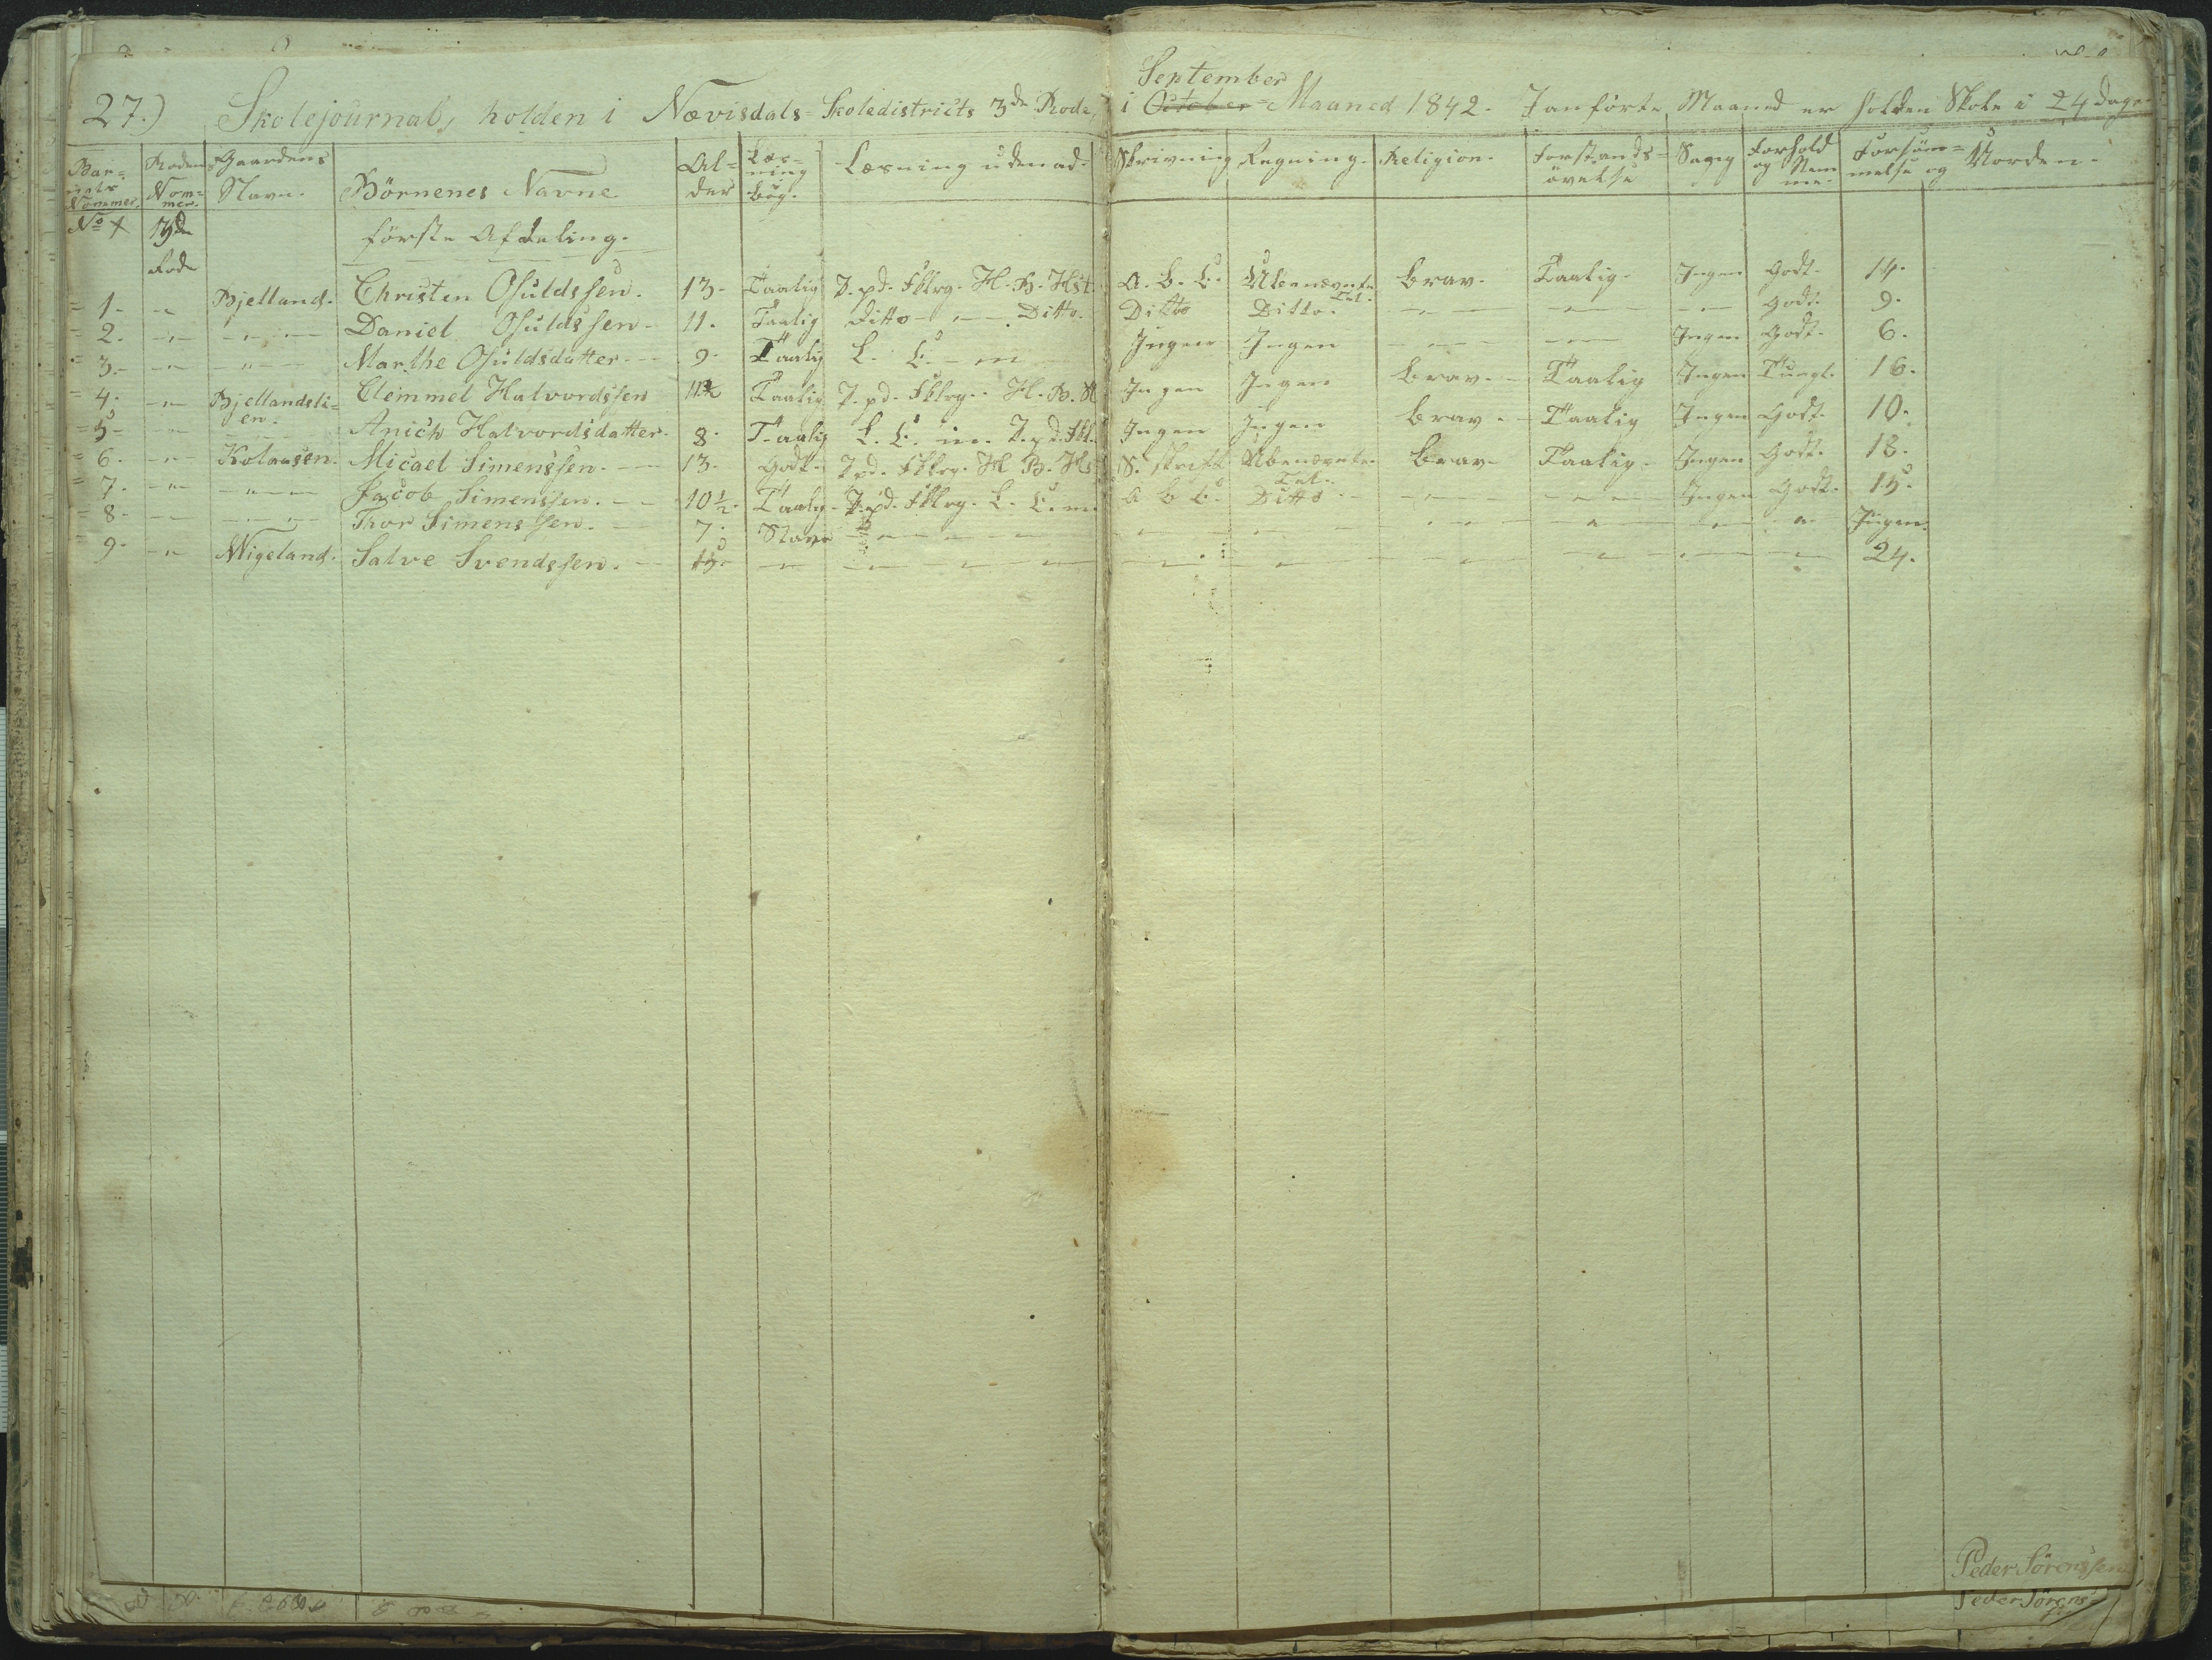 27.) Skolejournal, holden i Nævisdals=Skoledistricts 3de Rode, i October=Maaned 1842. I anførte Maaned er holden Skole i 24 dage.
September
Bar=nets Nommer. Rodens Nom=mer. Gaardens Navn. Börnenes Navne Al=der Læs=ning i Bog. Læsning udenad. Skrivning Regning. Religion. Forstands=øvelse Sang Forhold og Nem=me. Forsøm=melse og Uorden.
No 3de Rode første Afdeling.
1. -"- Bjelland. Christen Osuldssen. 13. Taalig P.pd. Fklrg. H. B. Hst. A. B. C. Ubenævnte Tal. brav. Taalig. Ingen Godt. 14.
2. -"- -"- Daniel Osuldssen 11. Taalig Ditto -"- Ditto. Ditto Ditto. -"- -"- -"- Godt. 9.
3. -"- -"- Marthe Osuldsdatter 9. Taalig L. C. Ingen Ingen -"- -"- Ingen Godt. 6.
4. -"- Bjellandsli=en. Clemmet Halvordssen 11½ Taalig P.pd. Fklrg. H. B. Ingen Ingen brav. Taalig Ingen Tungt. 16.
5. -"- Anich Halvordsdatter. 8. Taalig L. C. P.pd. Fkl. Ingen Ingen brav. Taalig Ingen Godt. 10.
6. -"- Kolaasen. Micael Simenssen. 13. Godt. P.pd. Fklrg. H. B. Hst S. skrift Ubenævnte Tal. brav Taalig Ingen Godt. 18.
7. -"- -"- Jacob Simenssen. 10½. Taalig P.pd. Fklrg. L. C. A B C. Ditto -"- -"- Ingen Godt. 15.
8. -"- -"- Thor Simenssen. 7. Stave -"- -"- -"- -"- -"- -"- -"- Ingen.
9. -"- Migeland. Salve Svendssen. 15. -"- -"- -"- -"- -"- -"- -"- -"- 24.
Peder Sörenssen
Peder Sörens=